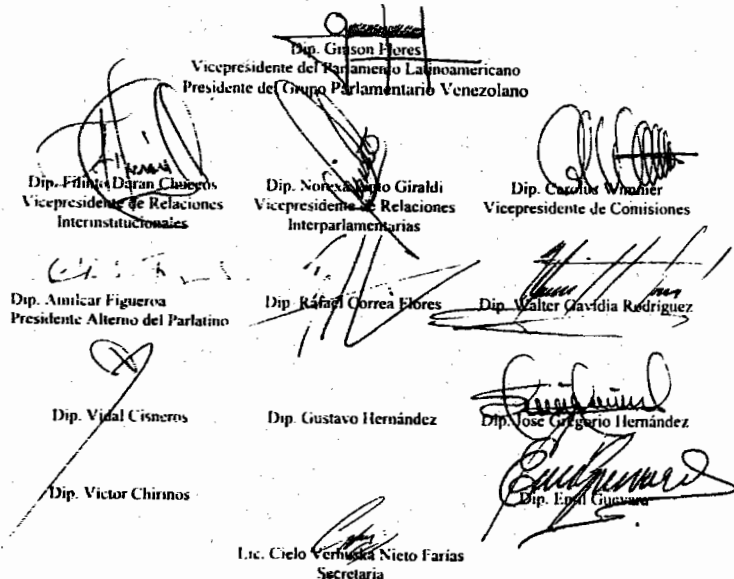 Dip. Grison Flores
Vicepresidente del Parlamento Latinoamericano
Presidente del Grupo Parlamentario Venezolano
Dip. Filinto Duran Chuecos
Vicepresidente de Relaciones
Interinstitucionales
Dip. Norexa Giraldi
Vicepresidente de Relaciones
Interparlamentarias
Dip. Carolus Wimmer
Vicepresidente de Comisiones
Dip. Amilcar Figueroa
Presidente Alterno del Parlatino
Dip. Rafael Correa Flores
Dip. Walter Gavidia Rodriguez
Dip. Vidal Cisneros
Dip. Gustavo Hernández
Dip. Jose Gregorio Hernández
Dip. Victor Chirinos
Dip. Emil Guevara
Lic. Cielo Verhuska Nieto Farias
Secretaria